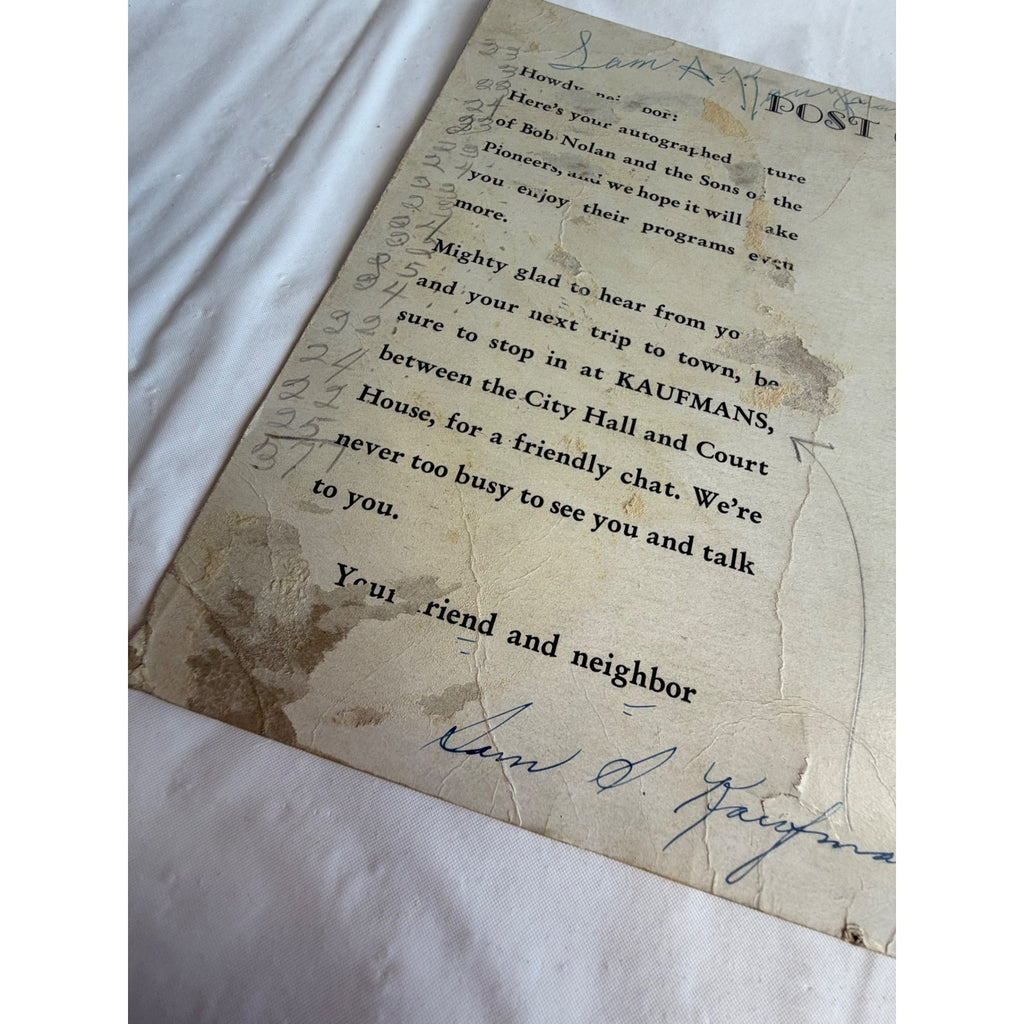 Sam A. Kaufman
POST
Howdy nei bor:
Here's your autographed ture
of Bob Nolan and the Sons of the
Pioneers, and we hope it will make
you enjoy their programs even
more.
Mighty glad to hear from yo
and your next trip to town, be
sure to stop in at KAUFMANS,
between the City Hall and Court
House, for a friendly chat. We're
never too busy to see you and talk
to you.
Your friend and neighbor
Sam S Kaufma
24
22
25
377